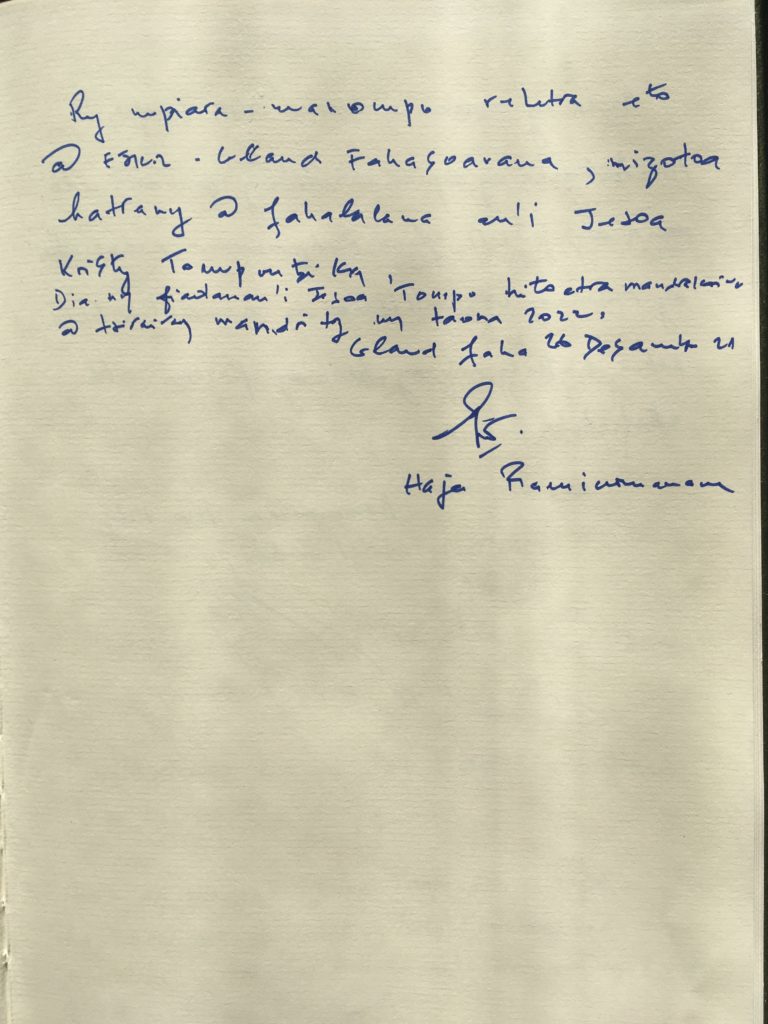 Ry mpiara-manompo rehetra eto
@ FSKM - Gland Fahasoavana, mizotoa
hatrany @ fahalalana an'i Jesoa
Kristy Tompontsika,
Dia ny fiadanan'i Jesoa Tompo hitoetra
@ tsirairay mandrity ny taona 2022.
Gland faha 26 Desamb 21
Haja